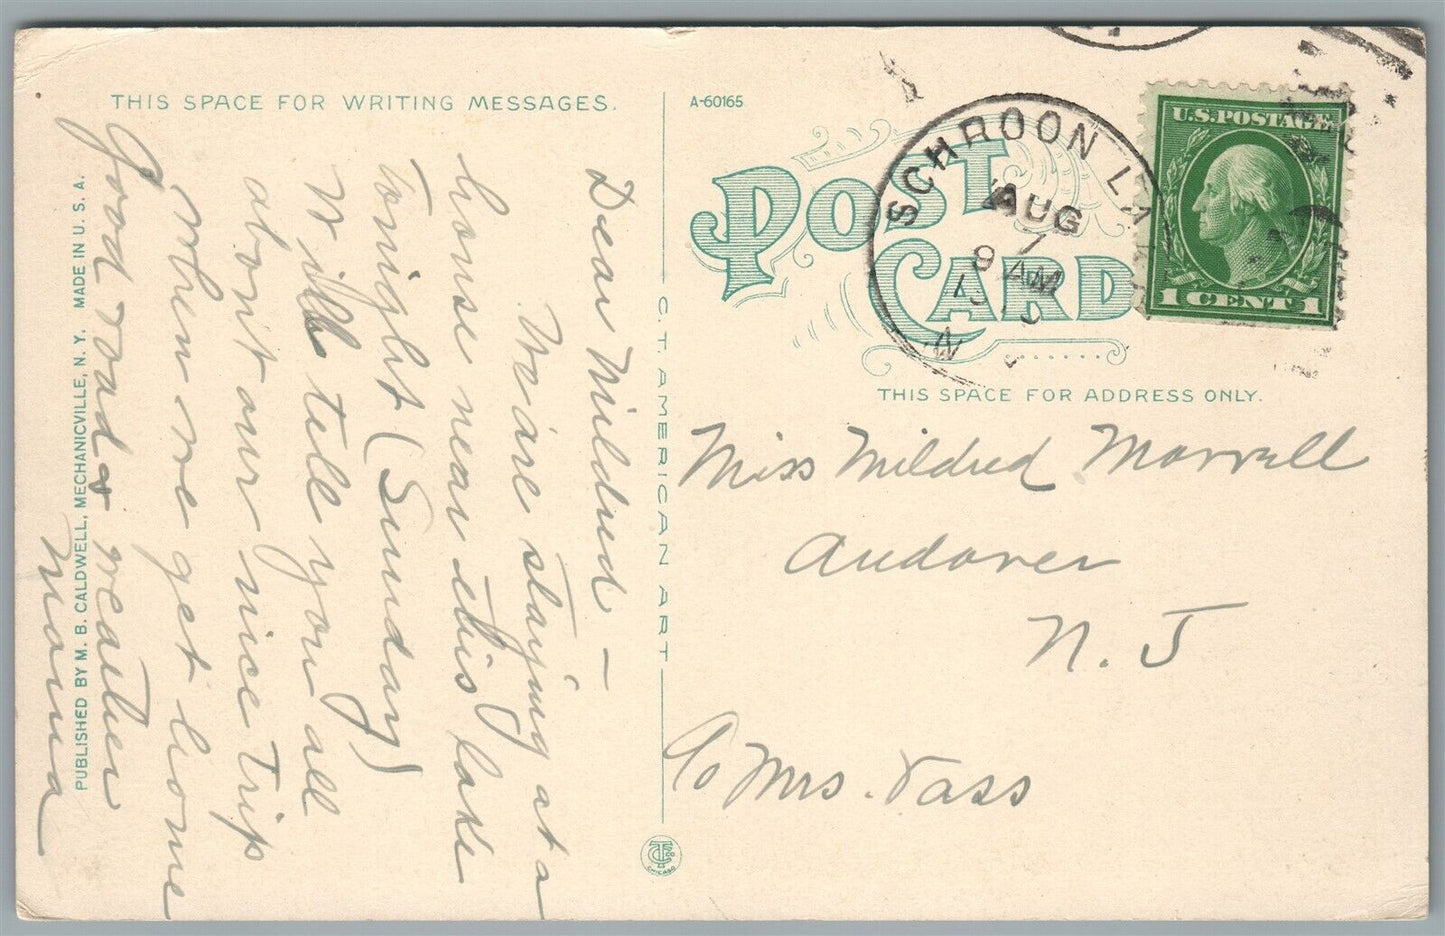 THIS SPACE FOR WRITING MESSAGES.
Dear Mildred –
We are staying at a
house near this lake
tonight (Sunday)
Will tell you all
about our nice trip
when we get home
Good roads & weather
Mama
PUBLISHED BY M. B. CALDWELL, MECHANICVILLE, N. Y. MADE IN U. S. A.
C. T. AMERICAN ART
A-60165
POST CARD
SCHROON LAKE
AUG
7
9 AM
N
U.S. POSTAGE
1 CENT 1
THIS SPACE FOR ADDRESS ONLY.
Miss Mildred Morrell
Andover
N. J
c/o Mrs. Vass
CHICAGO